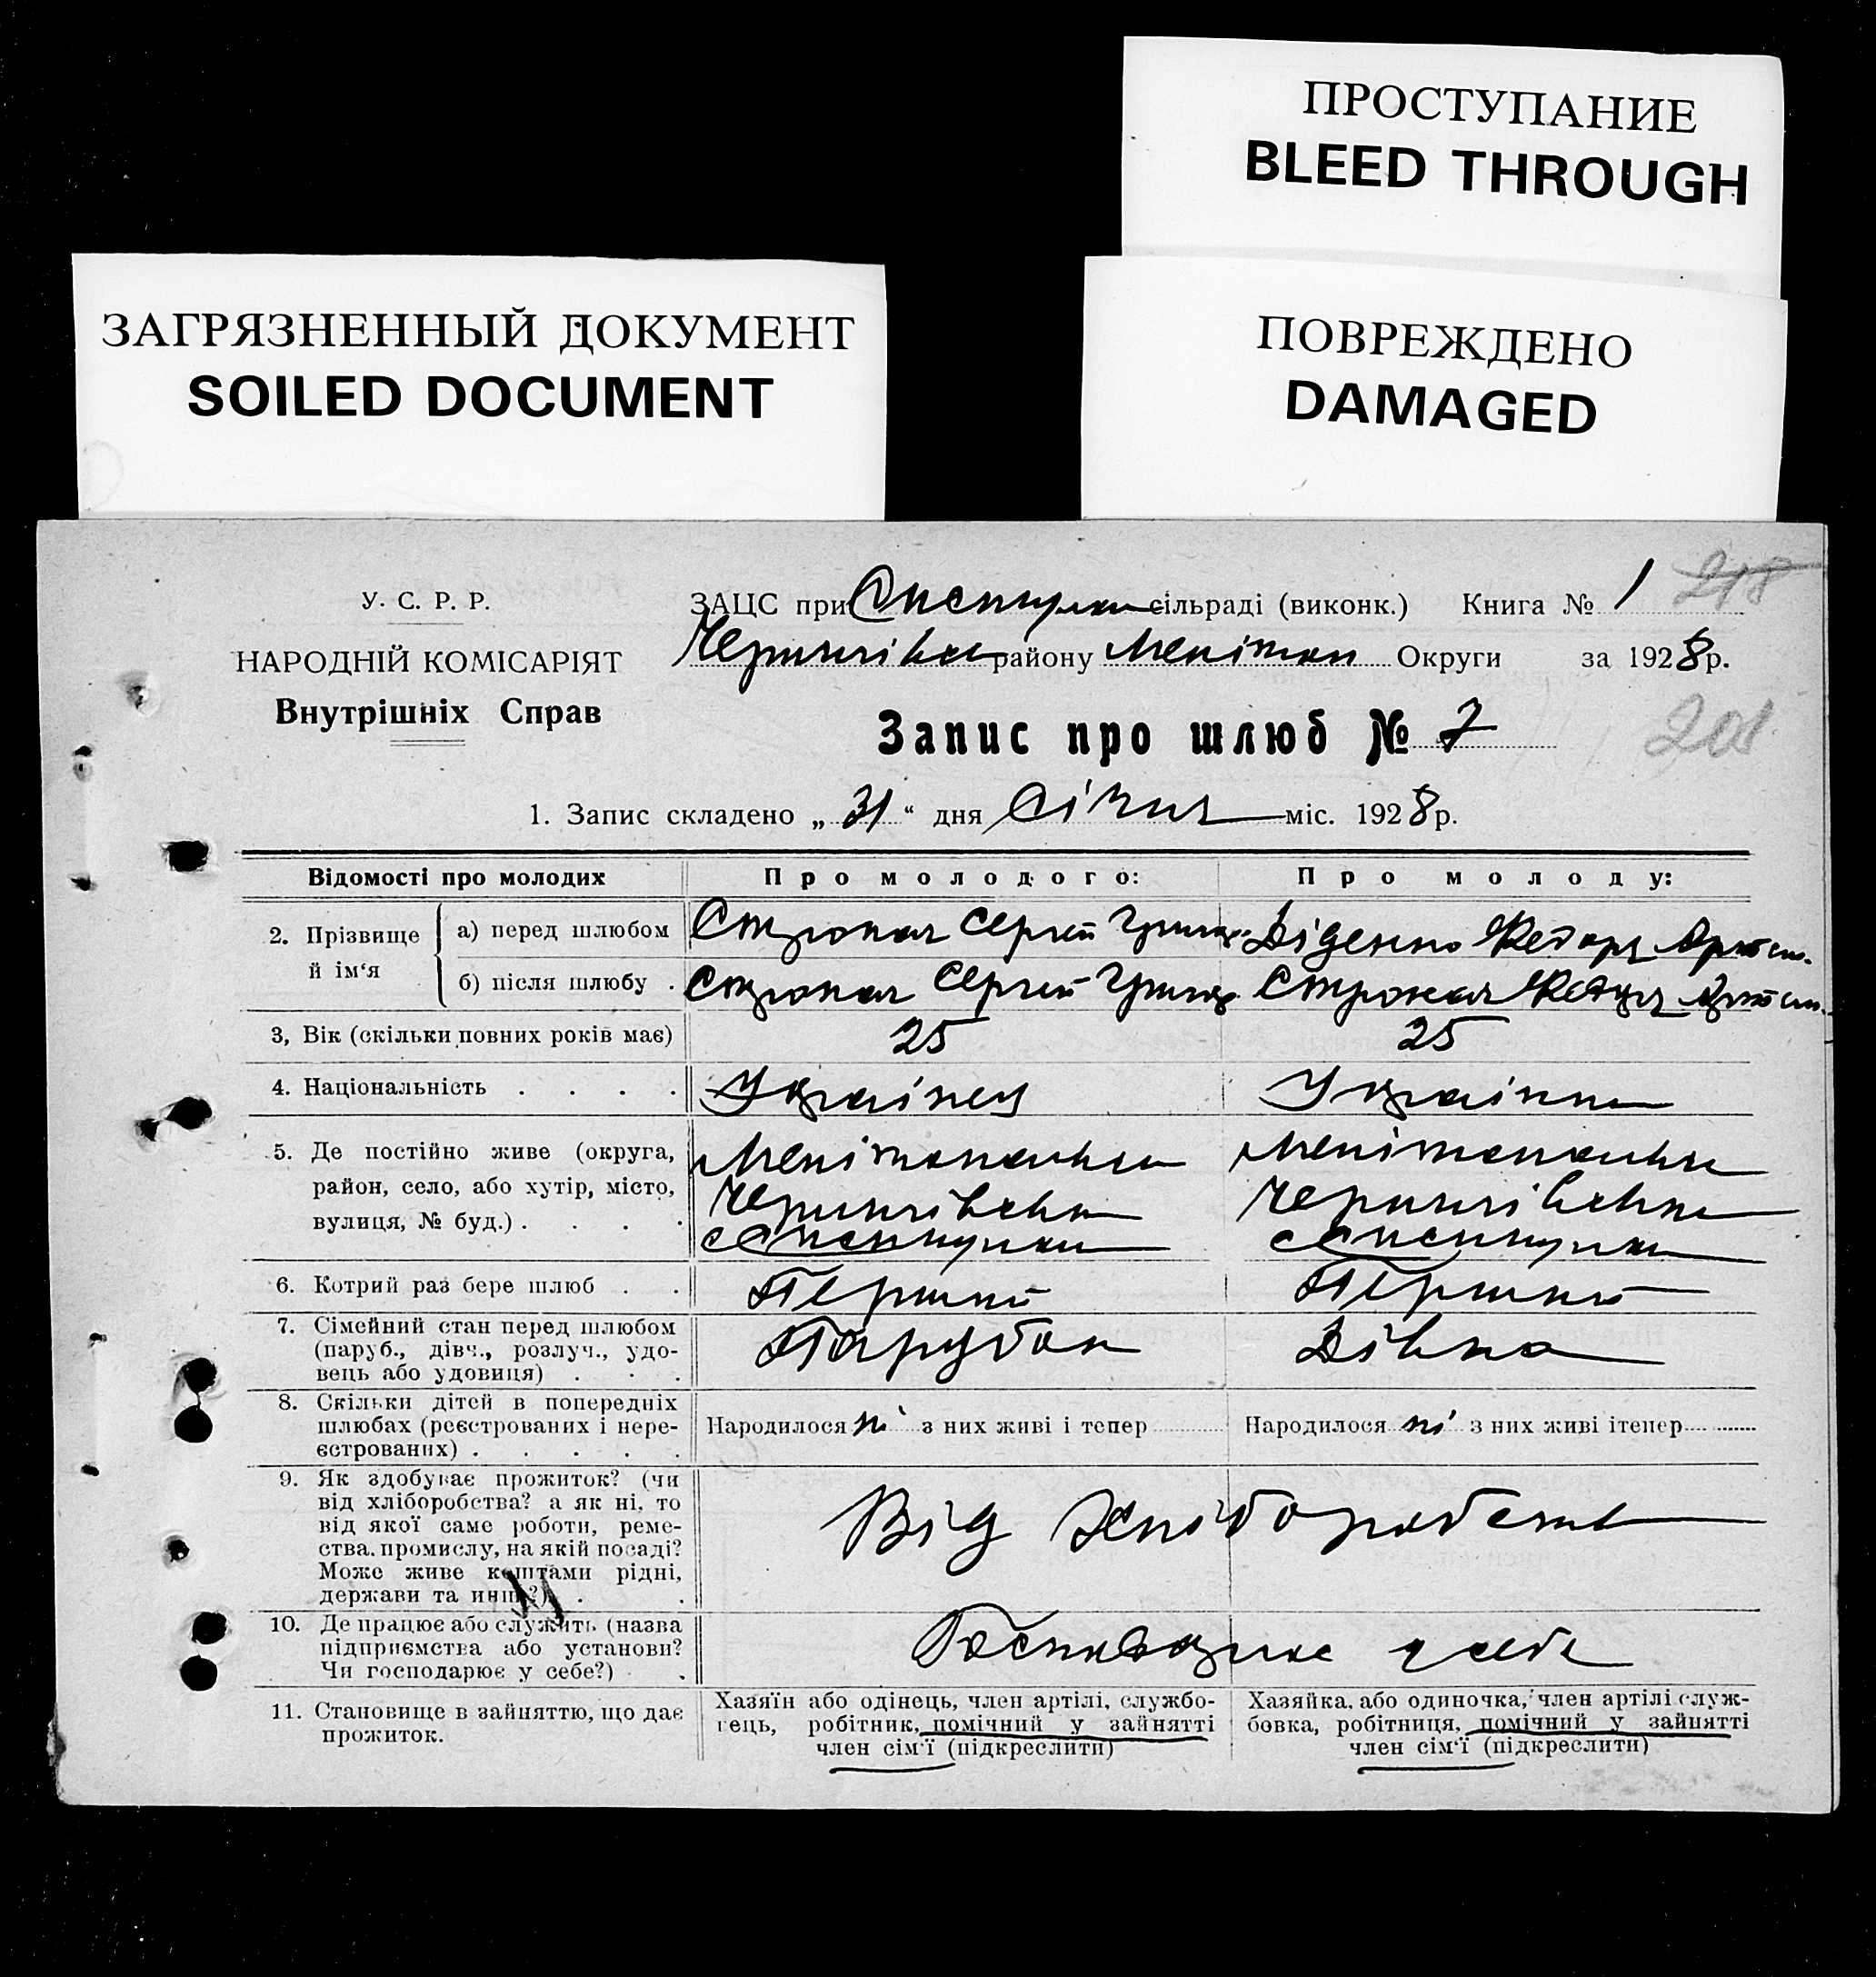 ПРОСТУПАНИЕ
BLEED THROUGH
ЗАГРЯЗНЕННЫЙ ДОКУМЕНТ
SOILED DOCUMENT
ПОВРЕЖДЕНО
DAMAGED
218
У. С. Р. Р.
ЗАЦС при сільраді (виконк.) Книга № 1
НАРОДНІЙ КОМІСАРІЯТ
Внутрішніх Справ
Чернигівск району Меліпол Округи за 1928 р.
Запис про шлюб № 7
201
1. Запис складено „ 31 “ дня Січня міс. 1928 р.
Відомості про молодих
Про молодого:
Про молоду:
2. Прізвище й ім‘я
а) перед шлюбом
Сергій Діденко
б) після шлюбу .
Сергій
3, Вік (скільки повних років має)
25
25
4. Національність . . . .
Українец
Українка
5. Де постійно живе (округа,
район, село, або хутір, місто,
вулиця, № буд.) . . . .
6. Котрий раз бере шлюб . .
Перший
Перший
7. Сімейний стан перед шлюбом
(паруб., дівч., розлуч., удо-
вець або удовиця) . . .
Парубок
Дівка
8. Скільки дітей в попередніх
шлюбах (реєстрованих і нере-
єстрованих) . . . . .
Народилося ні з них живі і тепер
Народилося ні з них живі ітепер
9. Як здобуває прожиток? (чи
від хліборобства? а як ні, то
від якої саме роботи, реме-
ства, промислу, на якій посаді?
Може живе коштами рідні,
держави та инш.?) . .
Від хліборобств
10. Де працює або служить (назва
підприємства або установи?
Чи господарює у себе?) .
Господарює у себе
11. Становище в зайняттю, що дає
прожиток.
Хазяїн або одінець, член артілі, службо-
вець, робітник, помічний у зайнятті
член сім‘ї (підкреслити)
Хазяйка, або одиночка, член артілі служ-
бовка, робітниця, помічний у зайнятті
член сім‘ї (підкреслити)